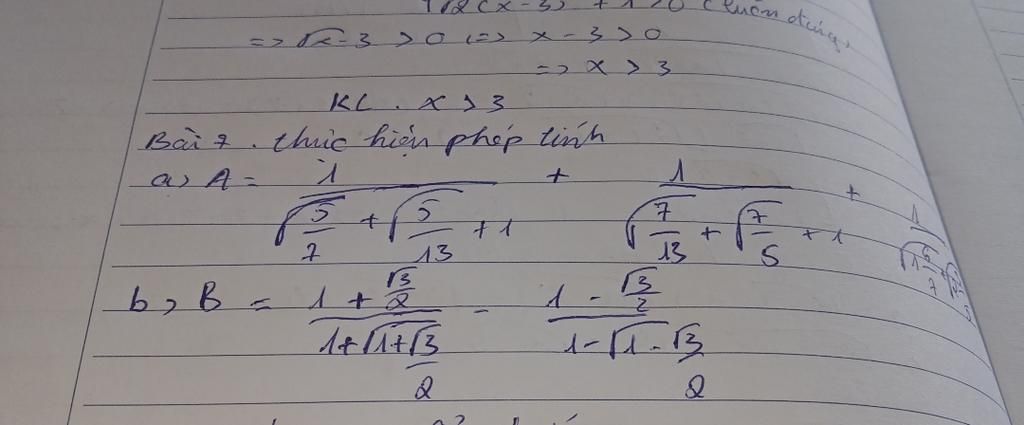 √2(x-3) + 1 > 0 (luôn đúng)
=> √x-3 > 0 <=> x - 3 > 0
=> x > 3
KL . x > 3
Bài 7 . thực hiện phép tính
a, A = 1/(√(5/7) + √(5/13) + 1) + 1/(√(7/13) + √(7/5) + 1) +
b, B = (1 + √3/2)/(1+√(1+√3/2)) - (1 - √3/2)/(1-√(1-√3/2))